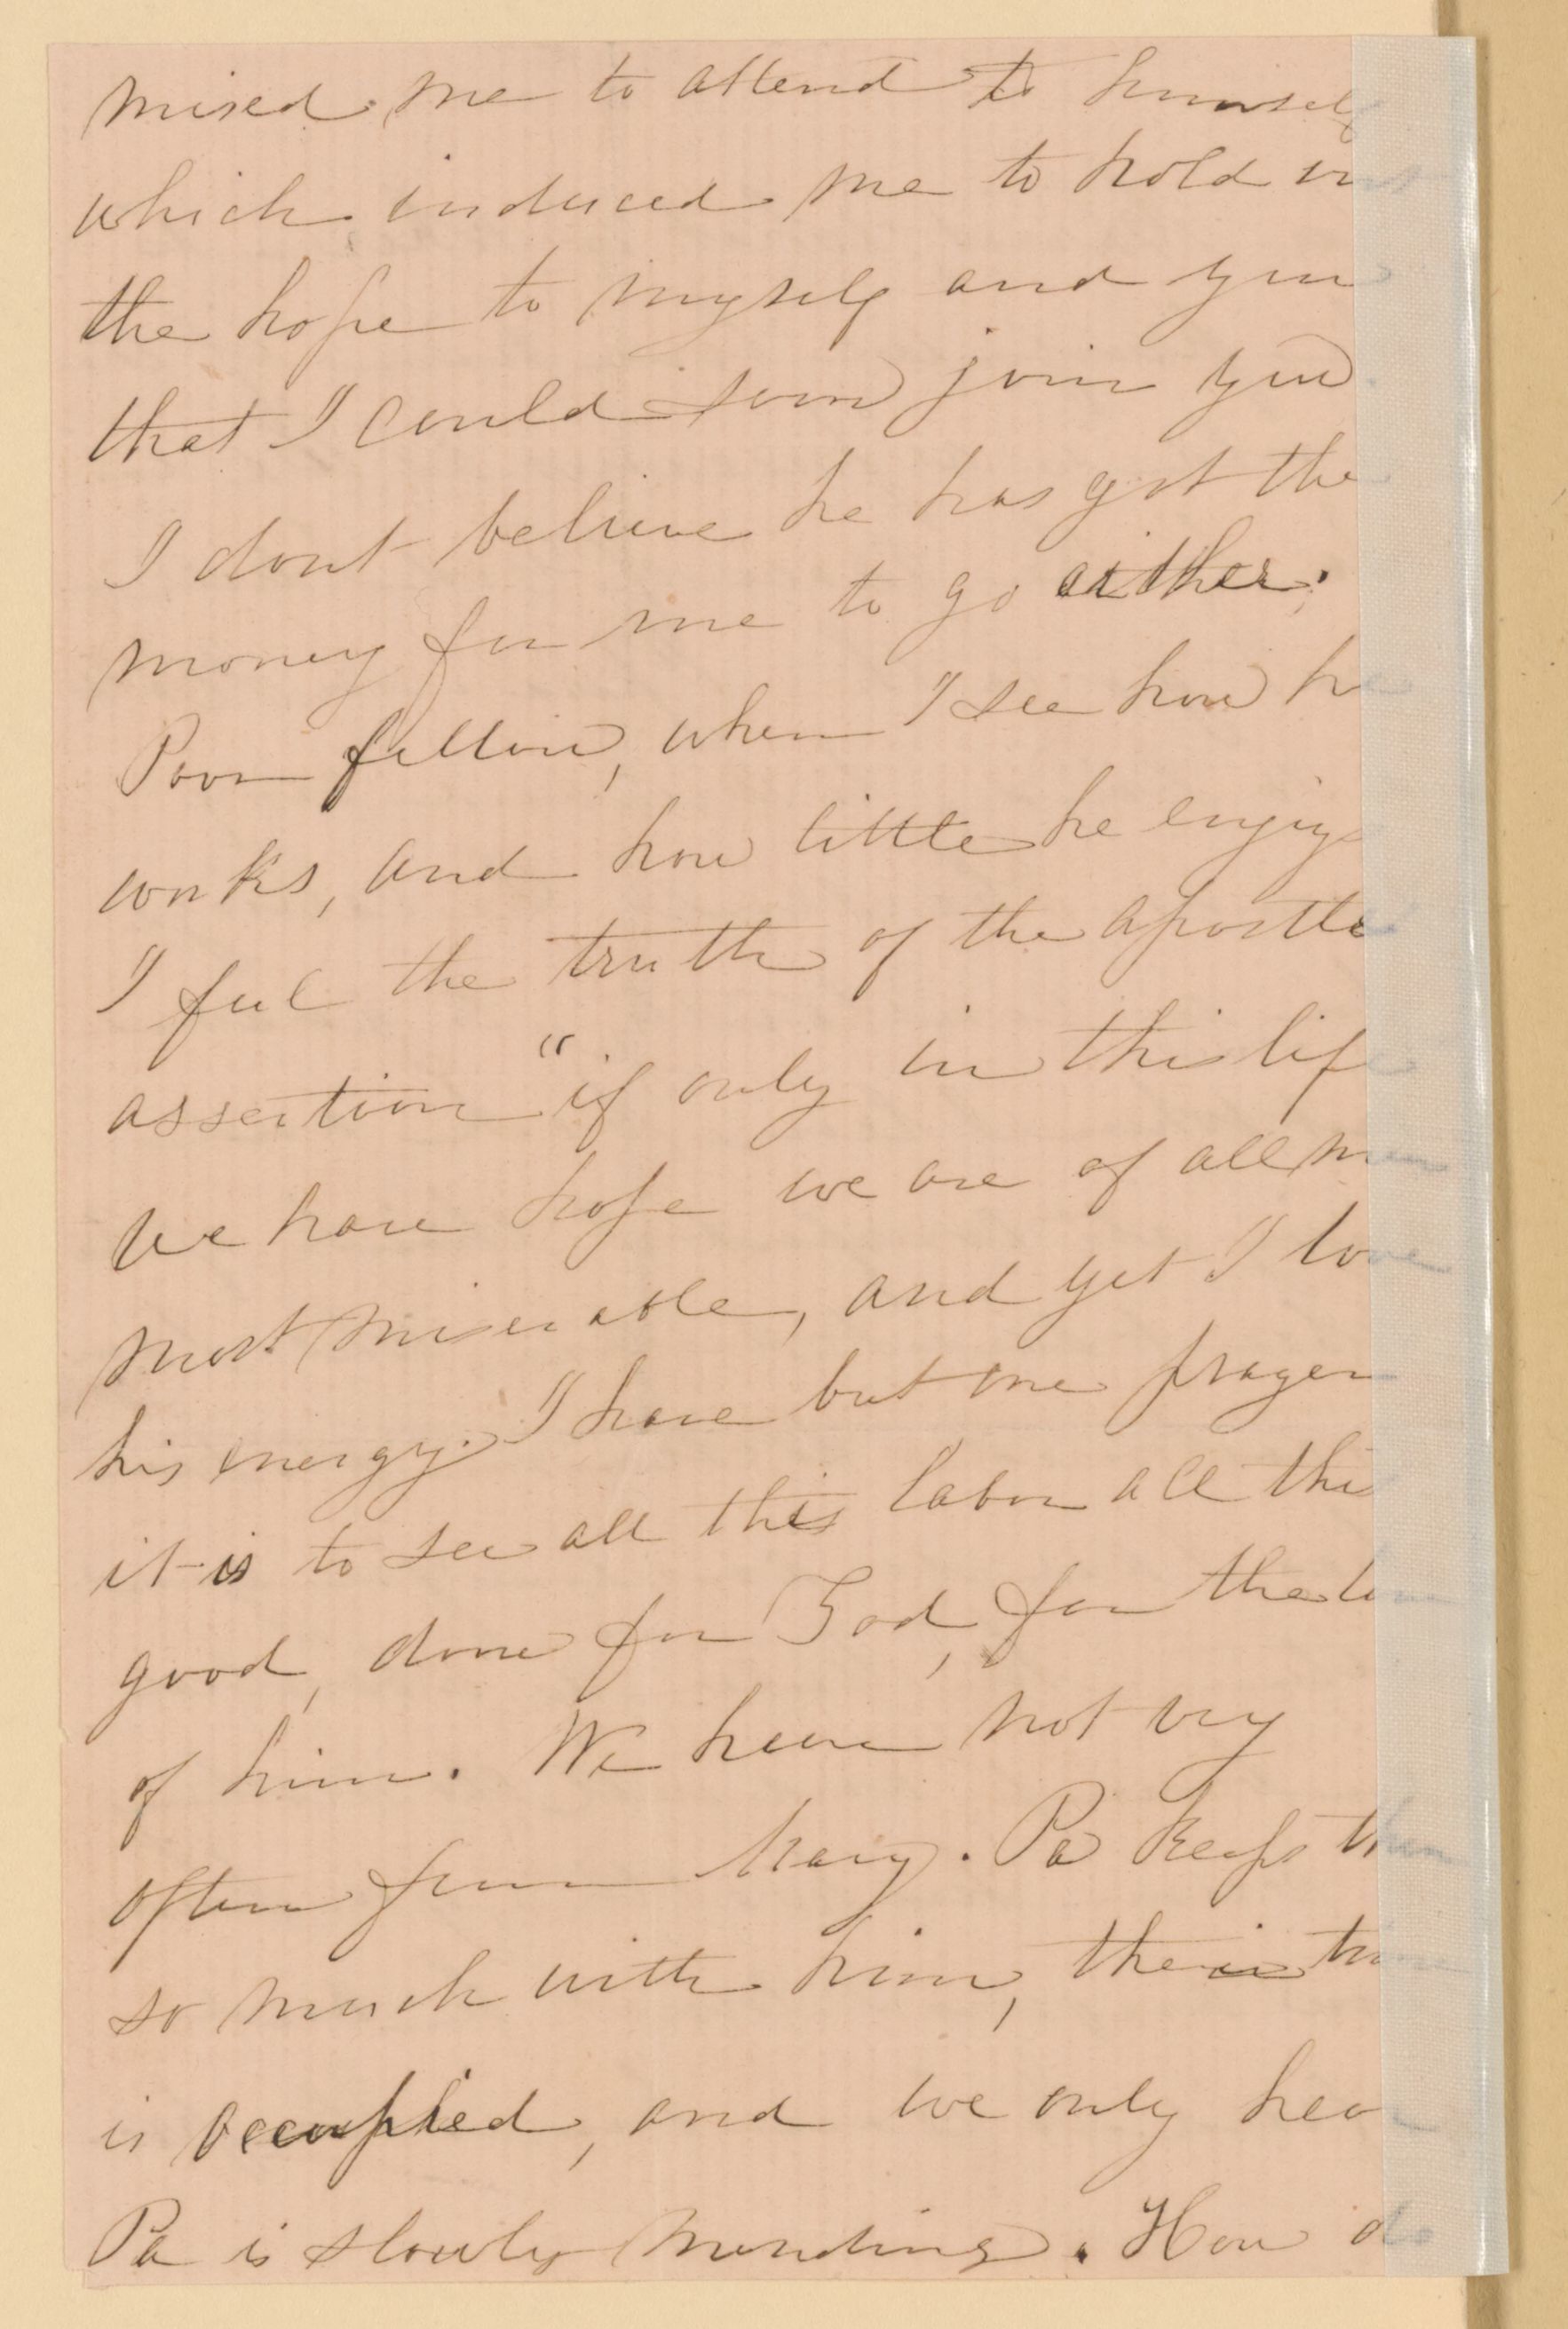 mised me to attend to himself
which induced me to hold out
the hope to myself and you
that I could soon join you
I dont believe he has got the
money for me to go either.
Poor fellow, when I see how he
works, and how little he enjoys
I feel the truth of the apostles
assertion "if only in this life
we have hope we are of all men
most miserable, and yet I love
his energy. I have but one prayer
it is to see all this labor all this
good, done for God, for the love
of him. We hear not very
often from Mary. Pa keeps them
so much with him, their time
is occupied, and we only hear
Pa is slowly mending. How do